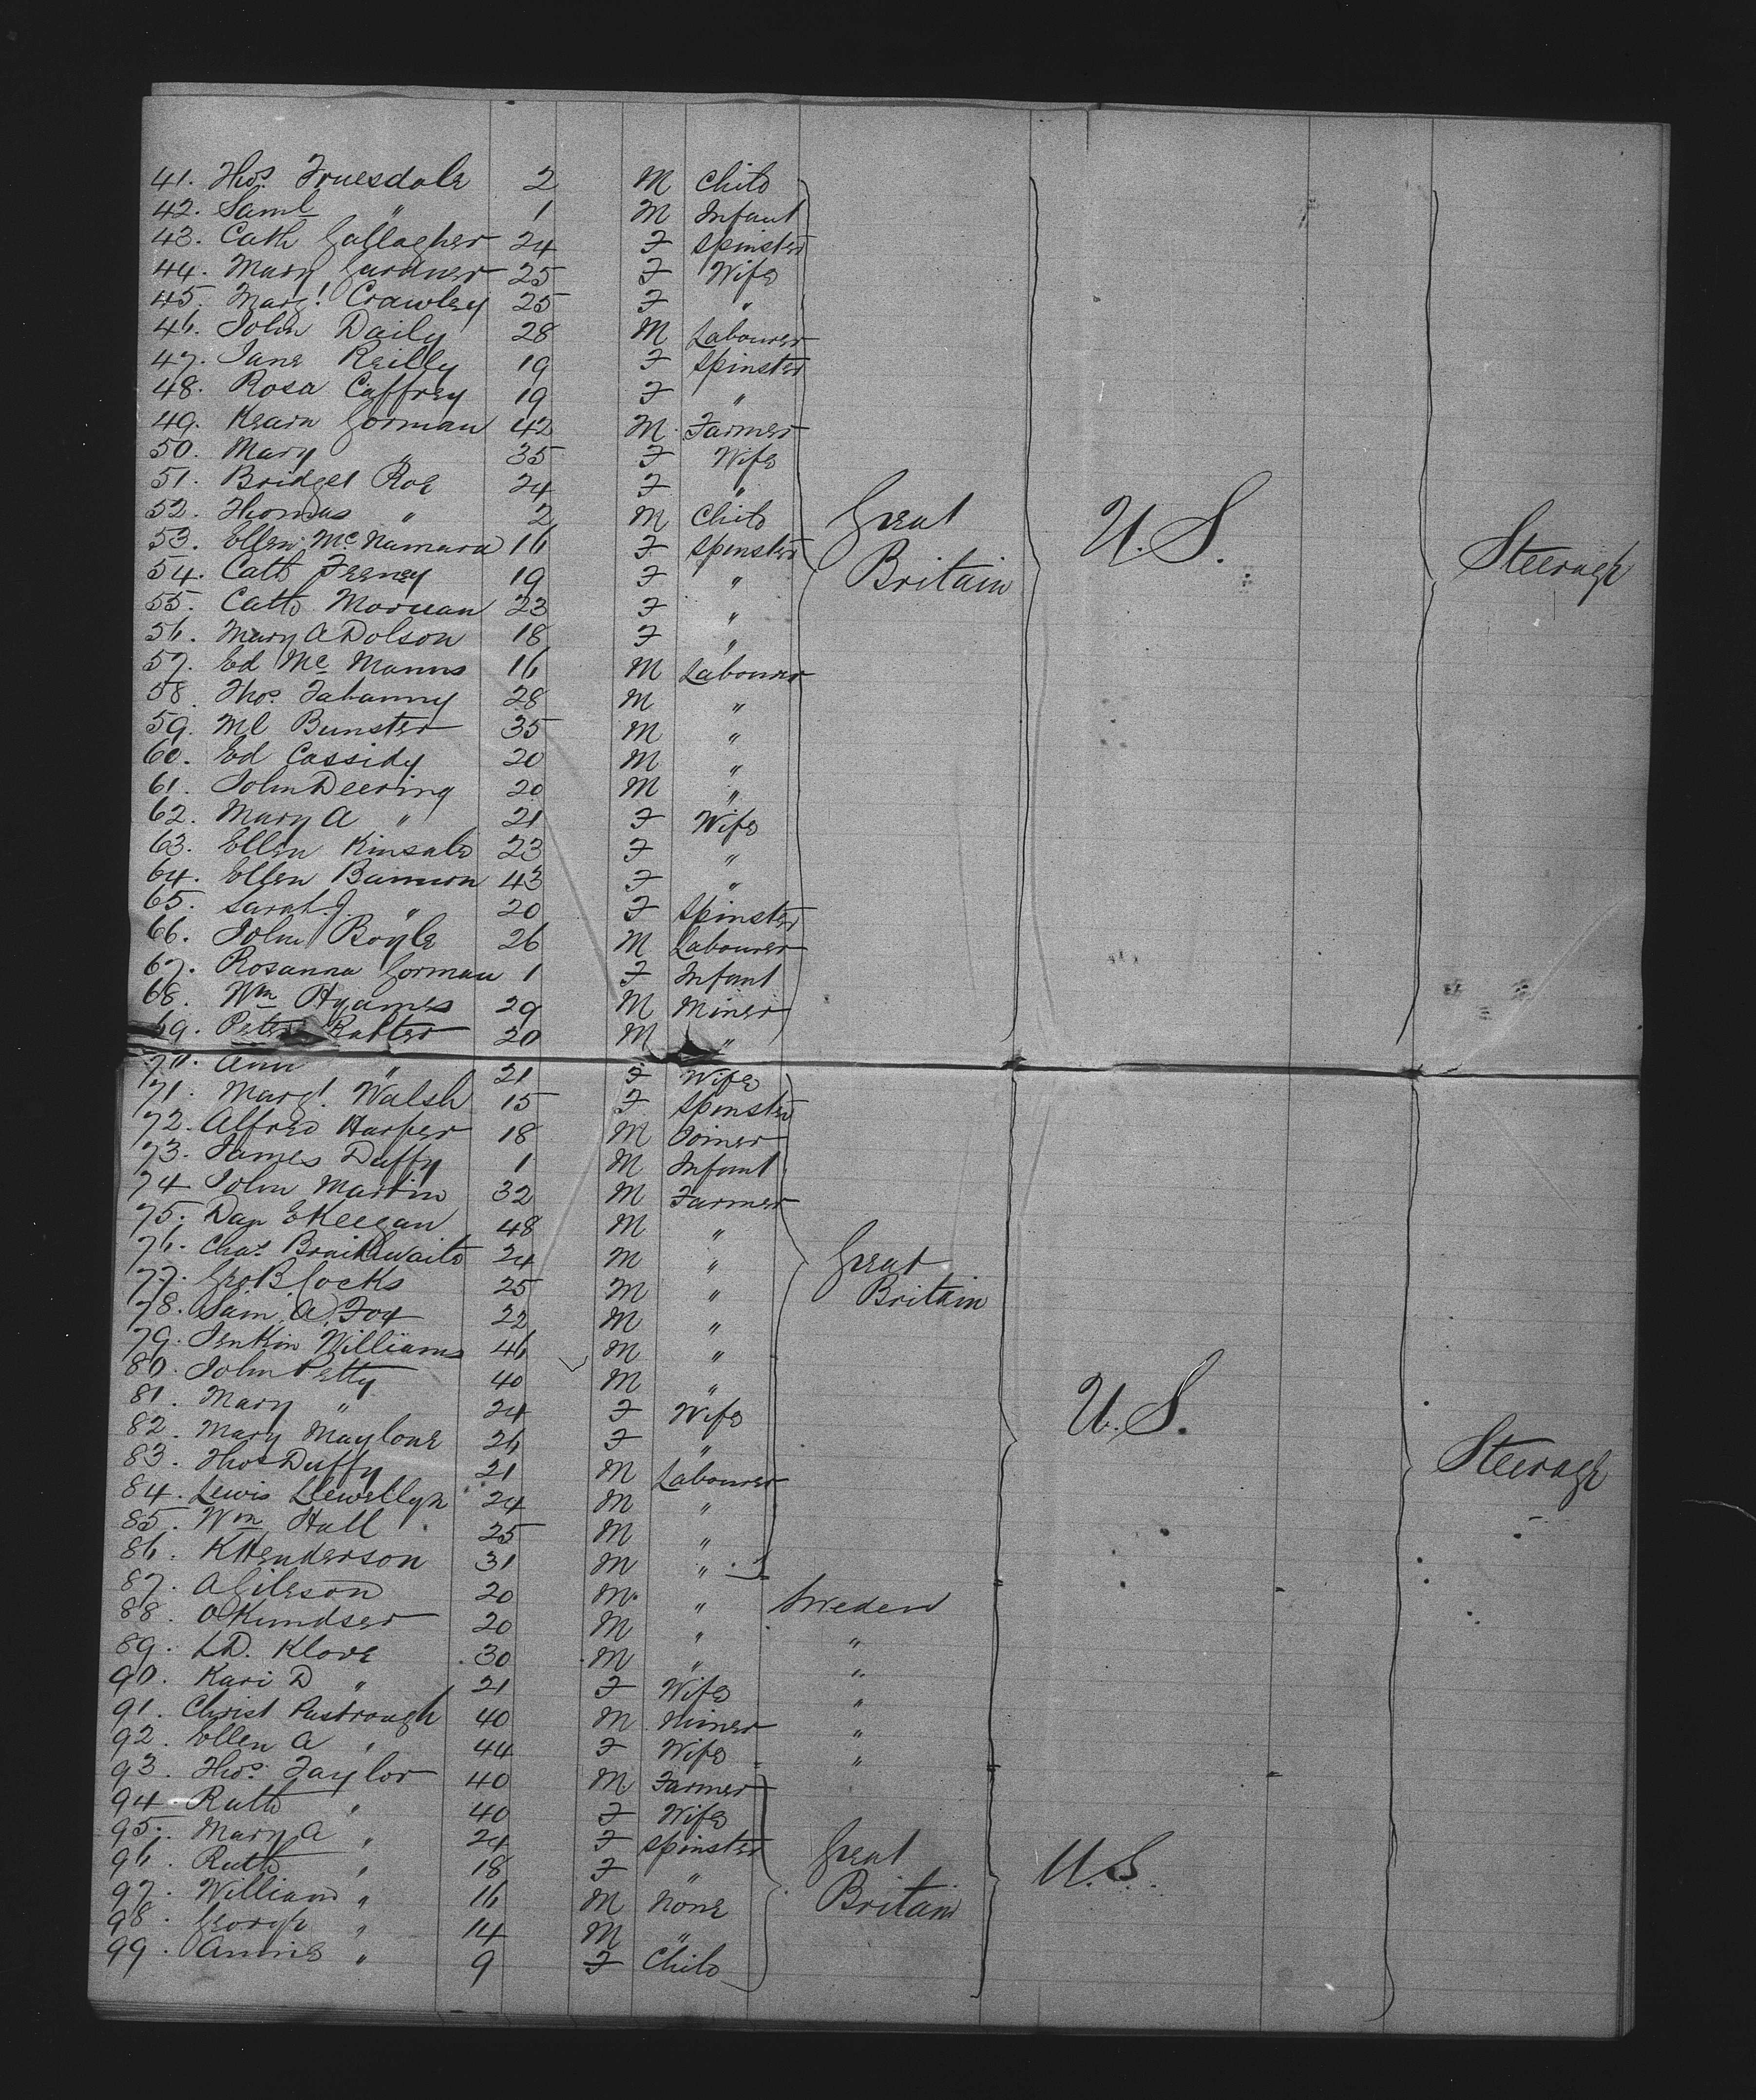 41. Thos. Truesdale 2 M Child
42. Saml " 1 M Infant
43. Cath Gallagher 24 F Spinster
44. Mary Gardner 25 F Wife
45. Margt. Crawley 25 F "
46. John Daily 28 M Labourer
47. Jane Reilly 19 F Spinster
48. Rosa Caffrey 19 F "
49. Kearn Gorman 42 M Farmer
50. Mary " 35 F Wife
51. Bridget Roe 24 F "
52. Thomas " 2 M Child
53. Ellen McNamara 16 F Spinster
54. Cath Feeney 19 F "
55. Cath 23 F "
56. Mary A Dolson 18 F "
57. Ed McManus 16 M Labourer
58. Thos. 28 M "
59. Ml Bunster 35 M "
60. Ed Cassidy 20 M "
61. John Deering 20 M "
62. Mary A " 21 F Wife
63. Ellen Kinsale 23 F "
64. Ellen Bannon 43 F "
65. Sarah J. " 20 F Spinster
66. John Boyle 26 M Labourer
67. Rosanna Gorman 1 F Infant
68. Wm Hyames 29 M Miner
69. Peter 20 M "
Great Britain U.S. Steerage
70. Ann " 21 F Wife
71. Margt. Walsh 15 F Spinster
72. Alfred Harper 18 M Joiner
73. James Duffy 1 M Infant
74 John Martin 32 M Farmer
75. Dan E Keegan 48 M "
76. Chas. Braithwaite 24 M "
77. Geo B. Cocks 25 M "
78. Sam. A. Fox 22 M "
79. Jenkin Williams 46 M "
80. John Petty 40 M "
81. Mary " 24 F Wife
82. Mary Maylone 26 F "
83. Thos Duffy 21 M Labourer
84. Lewis Llewellyn 24 M "
85. Wm Hall 25 M "
86. K Henderson 31 M "
Great Britain U.S. Steerage
87. A Gileson 20 M " Sweden
88. O Kundser 20 M " "
89. L D. Klove 30 M " "
90. Kari D " 21 F Wife "
91. Christ 40 M Miner "
92. Ellen A " 44 F Wife "
93. Thos. Taylor 40 M Farmer
94. Ruth " 40 F Wife
95. Mary A " 24 F Spinster
96. Ruth " 18 F "
97. William " 16 M None
98. George " 14 M "
99. Annie " 9 F Child
Great Britain U.S.